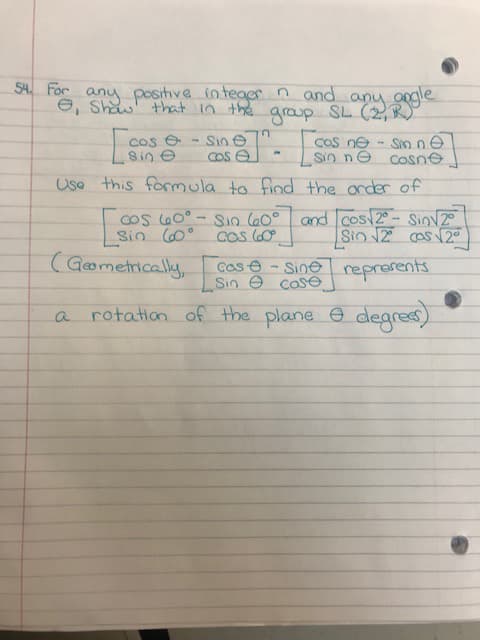 54. For any positive integer n and any angle
θ, Show that in the group SL (2, R)
[cos θ - sin θ]ⁿ = [cos nθ - sin nθ]
[sin θ cos θ] [sin nθ cosnθ]
Use this formula to find the order of
[cos 60° - Sin 60°] and [cos√2° - Sin√2°]
[sin 60° cos 60°] [Sin √2° cos √2°]
(Geometrically, [cos θ - sinθ] represents
[sin θ cosθ]
a rotation of the plane θ degrees)